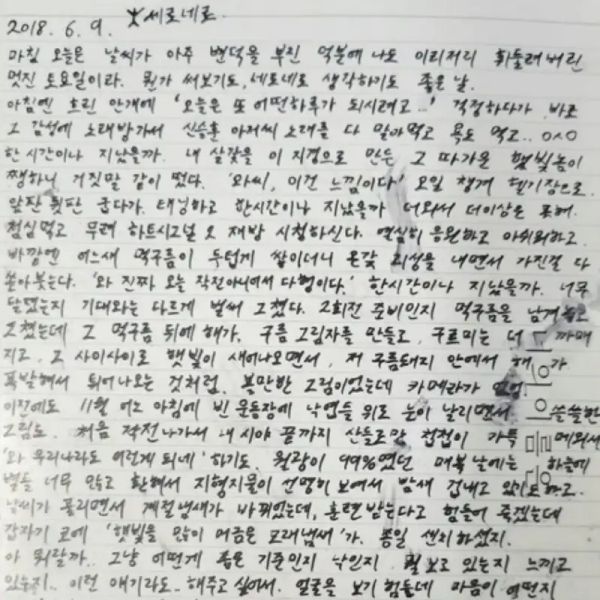 2018. 6. 9. 뽀세로네로.
마침 오늘은 날씨가 아주 변덕을 부린 덕분에 나도 이리저리 휘둘려버린
멋진 토요일이라. 뭔가 써보기도, 세로네로 생각하기도 좋은 날.
아침엔 흐린 안개에 '오늘은 또 어떤하루가 되시려고..' 걱정하다가 바로
그 감성에 노래방가서 신승훈 아저씨 노래를 다 말아먹고 욕도 먹고.. ㅇㅅㅇ
한시간이나 지났을까. 내 살갗을 이 지경으로 만든 그 따가운 햇빛놈이
쨍하니 거짓말 같이 떴다. '와씨, 이건 느낌이다.' 오일 챙겨 헬기장으로.
앞판 뒷판 굽다가. 태닝하고 한시간이나 지났을까 더워서 더이상은 못해.
점심먹고 무려 하트시그널 2 재방 시청하신다. 열심히 응원하고 아쉬워하고
바깥엔 어느새 먹구름이 두텁게 쌓이더니 온갖 괴성을 내면서 가진걸 다
쏟아붓는다. '와 진짜 오늘 작전아니어서 다행이다.' 한시간이나 지났을까. 너무
달렸는지 기대와는 다르게 벌써 그쳤다. 2회전 준비인지 먹구름을 남겨놓고
그쳤는데 그 먹구름 뒤에 해가. 구름 그림자를 만들고, 구르미는 더 까매
지고. 그 사이사이로 햇빛이 새어나오면서, 저 구름돼지 안에서 해가
폭발해서 튀어나오는 것처럼. 볼만한 그림이었는데 카메라가
이전에도 11월 어느 아침에 빈 운동장에 낙엽들 위로 눈이 날리면서 쓸쓸한
그림도. 처음 작전나가서 내 시야 끝까지 산들로만 첩첩이 가득 메워서
'와 우리나라도 이렇게 되네' 하기도. 월광이 99%였던 매복 날에는 하늘에
별들 너무 많고 환해서 지형지물이 선명히 보여서 밤새 겁내고 있기도하고.
날씨가 풀리면서 계절냄새가 바뀌었는데, 훈련받는다고 힘들어 죽겠는데
갑자기 코에 '햇빛을 많이 머금은 모래냄새'가. 종일 센치하셨지.
아 뭐랄까.. 그냥 어떻게 좋은 기준인지 낙인지. 뭘 보고 있는지 느끼고
있는지.. 이런 얘기라도.. 해주고 싶어서. 얼굴을 보기 힘든데 마음이 어떤지